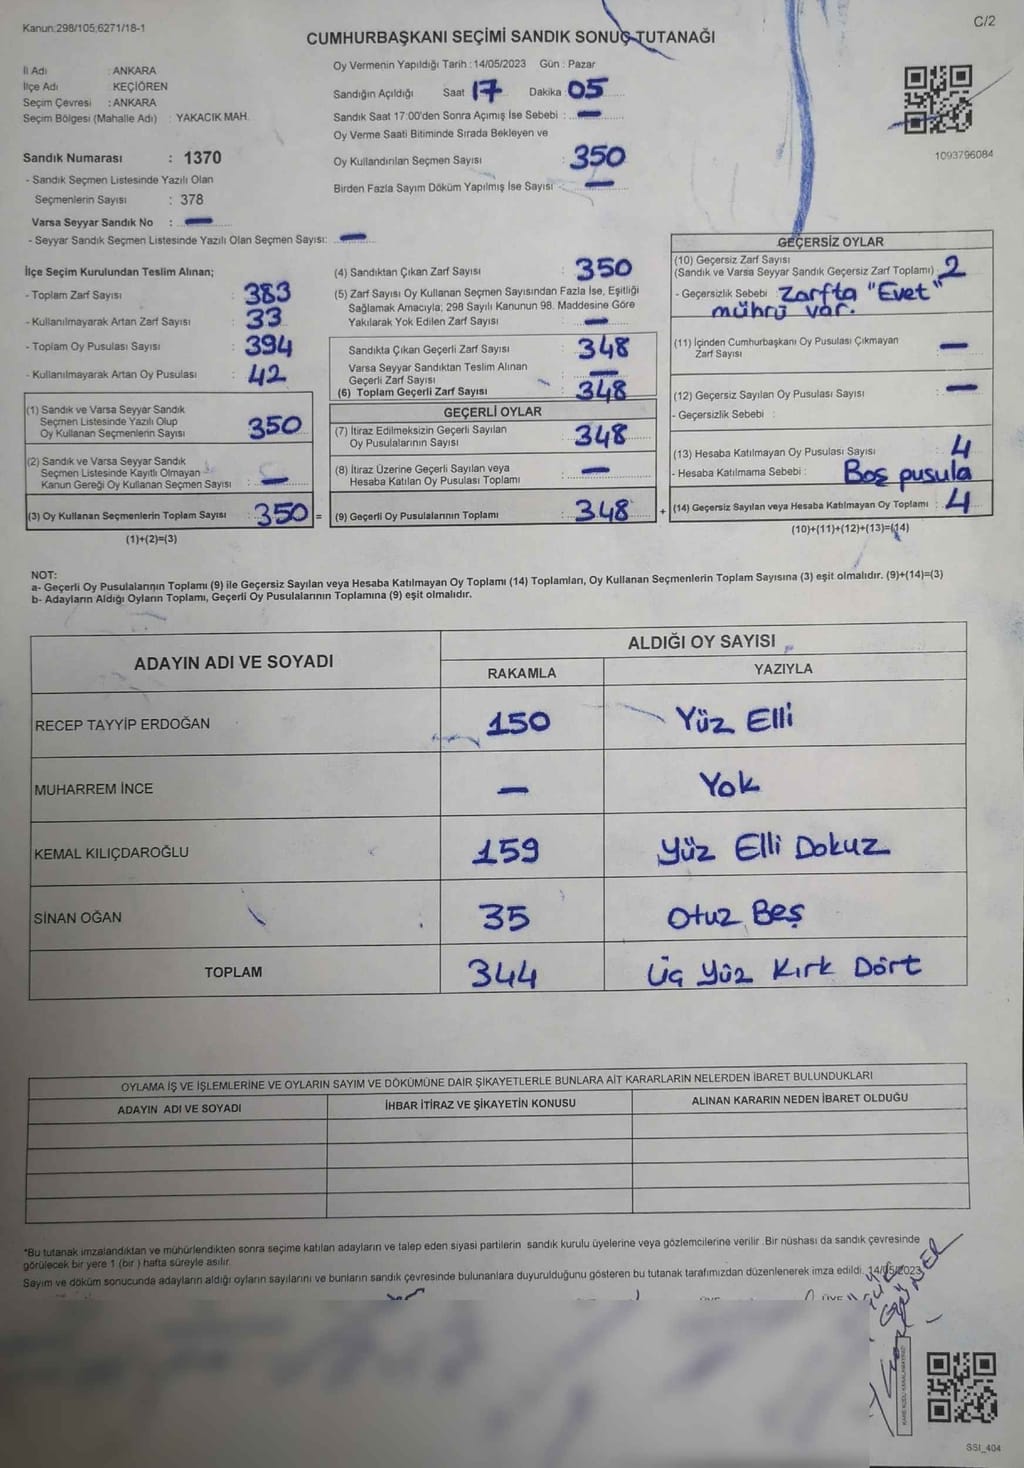 Kanun:298/105;6271/18-1
C/2
CUMHURBAŞKANI SEÇİMİ SANDIK SONUÇ TUTANAĞI
İl Adı : ANKARA
İlçe Adı : KEÇİÖREN
Seçim Çevresi : ANKARA
Seçim Bölgesi (Mahalle Adı) : YAKACIK MAH.
Sandık Numarası : 1370
- Sandık Seçmen Listesinde Yazılı Olan
Seçmenlerin Sayısı : 378
Varsa Seyyar Sandık No : —
- Seyyar Sandık Seçmen Listesinde Yazılı Olan Seçmen Sayısı: —
Oy Vermenin Yapıldığı Tarih : 14/05/2023 Gün : Pazar
Sandığın Açıldığı Saat 17 Dakika : 05
Sandık Saat 17:00'den Sonra Açımış İse Sebebi : —
Oy Verme Saati Bitiminde Sırada Bekleyen ve
Oy Kullandırılan Seçmen Sayısı : 350
Birden Fazla Sayım Döküm Yapılmış İse Sayısı : —
1093796084
İlçe Seçim Kurulundan Teslim Alınan;
- Toplam Zarf Sayısı : 383
- Kullanılmayarak Artan Zarf Sayısı : 33
- Toplam Oy Pusulası Sayısı : 394
- Kullanılmayarak Artan Oy Pusulası : 42
(1) Sandık ve Varsa Seyyar Sandık
Seçmen Listesinde Yazılı Olup
Oy Kullanan Seçmenlerin Sayısı : 350
(2) Sandık ve Varsa Seyyar Sandık
Seçmen Listesinde Kayıtlı Olmayan
Kanun Gereği Oy Kullanan Seçmen Sayısı : —
(3) Oy Kullanan Seçmenlerin Toplam Sayısı : 350 =
(1)+(2)=(3)
(4) Sandıktan Çıkan Zarf Sayısı : 350
(5) Zarf Sayısı Oy Kullanan Seçmen Sayısından Fazla İse, Eşitliği
Sağlamak Amacıyla; 298 Sayılı Kanunun 98. Maddesine Göre
Yakılarak Yok Edilen Zarf Sayısı : —
Sandıkta Çıkan Geçerli Zarf Sayısı : 348
Varsa Seyyar Sandıktan Teslim Alınan
Geçerli Zarf Sayısı : —
(6) Toplam Geçerli Zarf Sayısı : 348
GEÇERLİ OYLAR
(7) İtiraz Edilmeksizin Geçerli Sayılan
Oy Pusulalarının Sayısı : 348
(8) İtiraz Üzerine Geçerli Sayılan veya
Hesaba Katılan Oy Pusulası Toplamı : —
(9) Geçerli Oy Pusulalarının Toplamı : 348 +
GEÇERSİZ OYLAR
(10) Geçersiz Zarf Sayısı
(Sandık ve Varsa Seyyar Sandık Geçersiz Zarf Toplamı) : 2
- Geçersizlik Sebebi : Zarfta "Evet"
mührü var.
(11) İçinden Cumhurbaşkanı Oy Pusulası Çıkmayan
Zarf Sayısı : —
(12) Geçersiz Sayılan Oy Pusulası Sayısı : —
- Geçersizlik Sebebi :
(13) Hesaba Katılmayan Oy Pusulası Sayısı : 4
- Hesaba Katılmama Sebebi : Boş pusula
(14) Geçersiz Sayılan veya Hesaba Katılmayan Oy Toplamı : 4
(10)+(11)+(12)+(13)=(14)
NOT:
a- Geçerli Oy Pusulalarının Toplamı (9) ile Geçersiz Sayılan veya Hesaba Katılmayan Oy Toplamı (14) Toplamları, Oy Kullanan Seçmenlerin Toplam Sayısına (3) eşit olmalıdır. (9)+(14)=(3)
b- Adayların Aldığı Oyların Toplamı, Geçerli Oy Pusulalarının Toplamına (9) eşit olmalıdır.
ADAYIN ADI VE SOYADI
ALDIĞI OY SAYISI
RAKAMLA YAZIYLA
RECEP TAYYİP ERDOĞAN 150 Yüz Elli
MUHARREM İNCE — Yok
KEMAL KILIÇDAROĞLU 159 Yüz Elli Dokuz
SİNAN OĞAN 35 Otuz Beş
TOPLAM 344 Üç Yüz Kırk Dört
OYLAMA İŞ VE İŞLEMLERİNE VE OYLARIN SAYIM VE DÖKÜMÜNE DAİR ŞİKAYETLERLE BUNLARA AİT KARARLARIN NELERDEN İBARET BULUNDUKLARI
ADAYIN ADI VE SOYADI İHBAR İTİRAZ VE ŞİKAYETİN KONUSU ALINAN KARARIN NEDEN İBARET OLDUĞU
*Bu tutanak imzalandıktan ve mühürlendikten sonra seçime katılan adayların ve talep eden siyasi partilerin sandık kurulu üyelerine veya gözlemcilerine verilir .Bir nüshası da sandık çevresinde
görülecek bir yere 1 (bir ) hafta süreyle asılır.
Sayım ve döküm sonucunda adayların aldığı oyların sayılarını ve bunların sandık çevresinde bulunanlara duyurulduğunu gösteren bu tutanak tarafımızdan düzenlenerek imza edildi. 14/05/2023
SSI_404